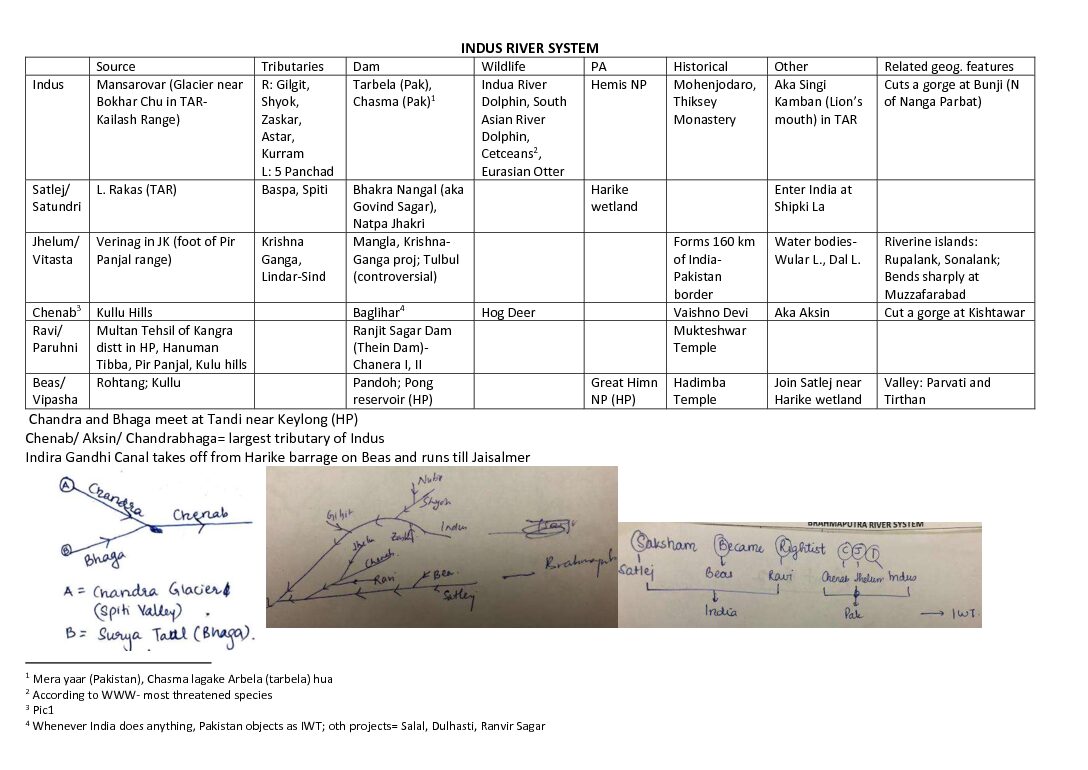 INDUS RIVER SYSTEM
Source Tributaries Dam Wildlife PA Historical Other Related geog. features
Indus Mansarovar (Glacier near Bokhar Chu in TAR- Kailash Range) R: Gilgit, Shyok, Zaskar, Astar, Kurram L: 5 Panchad Tarbela (Pak), Chasma (Pak)1 Indua River Dolphin, South Asian River Dolphin, Cetceans2, Eurasian Otter Hemis NP Mohenjodaro, Thiksey Monastery Aka Singi Kamban (Lion's mouth) in TAR Cuts a gorge at Bunji (N of Nanga Parbat)
Satlej/ Satundri L. Rakas (TAR) Baspa, Spiti Bhakra Nangal (aka Govind Sagar), Natpa Jhakri Harike wetland Enter India at Shipki La
Jhelum/ Vitasta Verinag in JK (foot of Pir Panjal range) Krishna Ganga, Lindar-Sind Mangla, Krishna- Ganga proj; Tulbul (controversial) Forms 160 km of India- Pakistan border Water bodies- Wular L., Dal L. Riverine islands: Rupalank, Sonalank; Bends sharply at Muzzafarabad
Chenab3 Kullu Hills Baglihar4 Hog Deer Vaishno Devi Aka Aksin Cut a gorge at Kishtawar
Ravi/ Paruhni Multan Tehsil of Kangra distt in HP, Hanuman Tibba, Pir Panjal, Kulu hills Ranjit Sagar Dam (Thein Dam)- Chanera I, II Mukteshwar Temple
Beas/ Vipasha Rohtang; Kullu Pandoh; Pong reservoir (HP) Great Himn NP (HP) Hadimba Temple Join Satlej near Harike wetland Valley: Parvati and Tirthan
Chandra and Bhaga meet at Tandi near Keylong (HP)
Chenab/ Aksin/ Chandrabhaga= largest tributary of Indus
Indira Gandhi Canal takes off from Harike barrage on Beas and runs till Jaisalmer
A Chandra
Chenab
B Bhaga
A = Chandra Glacier
(Spiti Valley)
B = Surya Taal (Bhaga).
Nubra
Shyok
Gilgit
Indus
Jhelum Zask
Chenab
Ravi Beas
Satlej
Brahmaph
BRAHMAPUTRA RIVER SYSTEM
Saksham Became Rightist C J I
Satlej Beas Ravi Chenab Jhelum Indus
India Pak → IWT.
1 Mera yaar (Pakistan), Chasma lagake Arbela (tarbela) hua
2 According to WWW- most threatened species
3 Pic1
4 Whenever India does anything, Pakistan objects as IWT; oth projects= Salal, Dulhasti, Ranvir Sagar